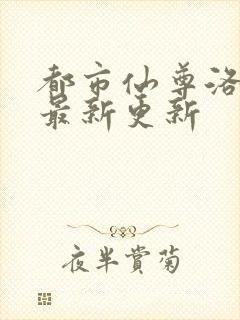 都市仙尊洛
最新更新
夜半赏菊